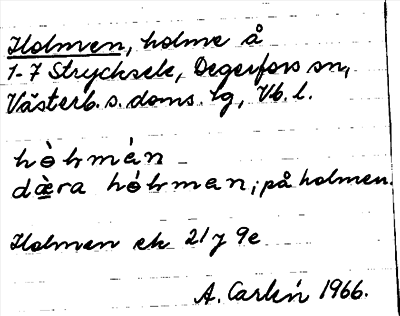 Holmen, holme å
1-7 Strycksele, Degerfors sn,
Västerb. s. doms. lg, Vb. l.
hòḷmàn
dæ̀ra hóḷman, på holmen.
Holmen ek 21 J 9e
A. Carlén 1966.